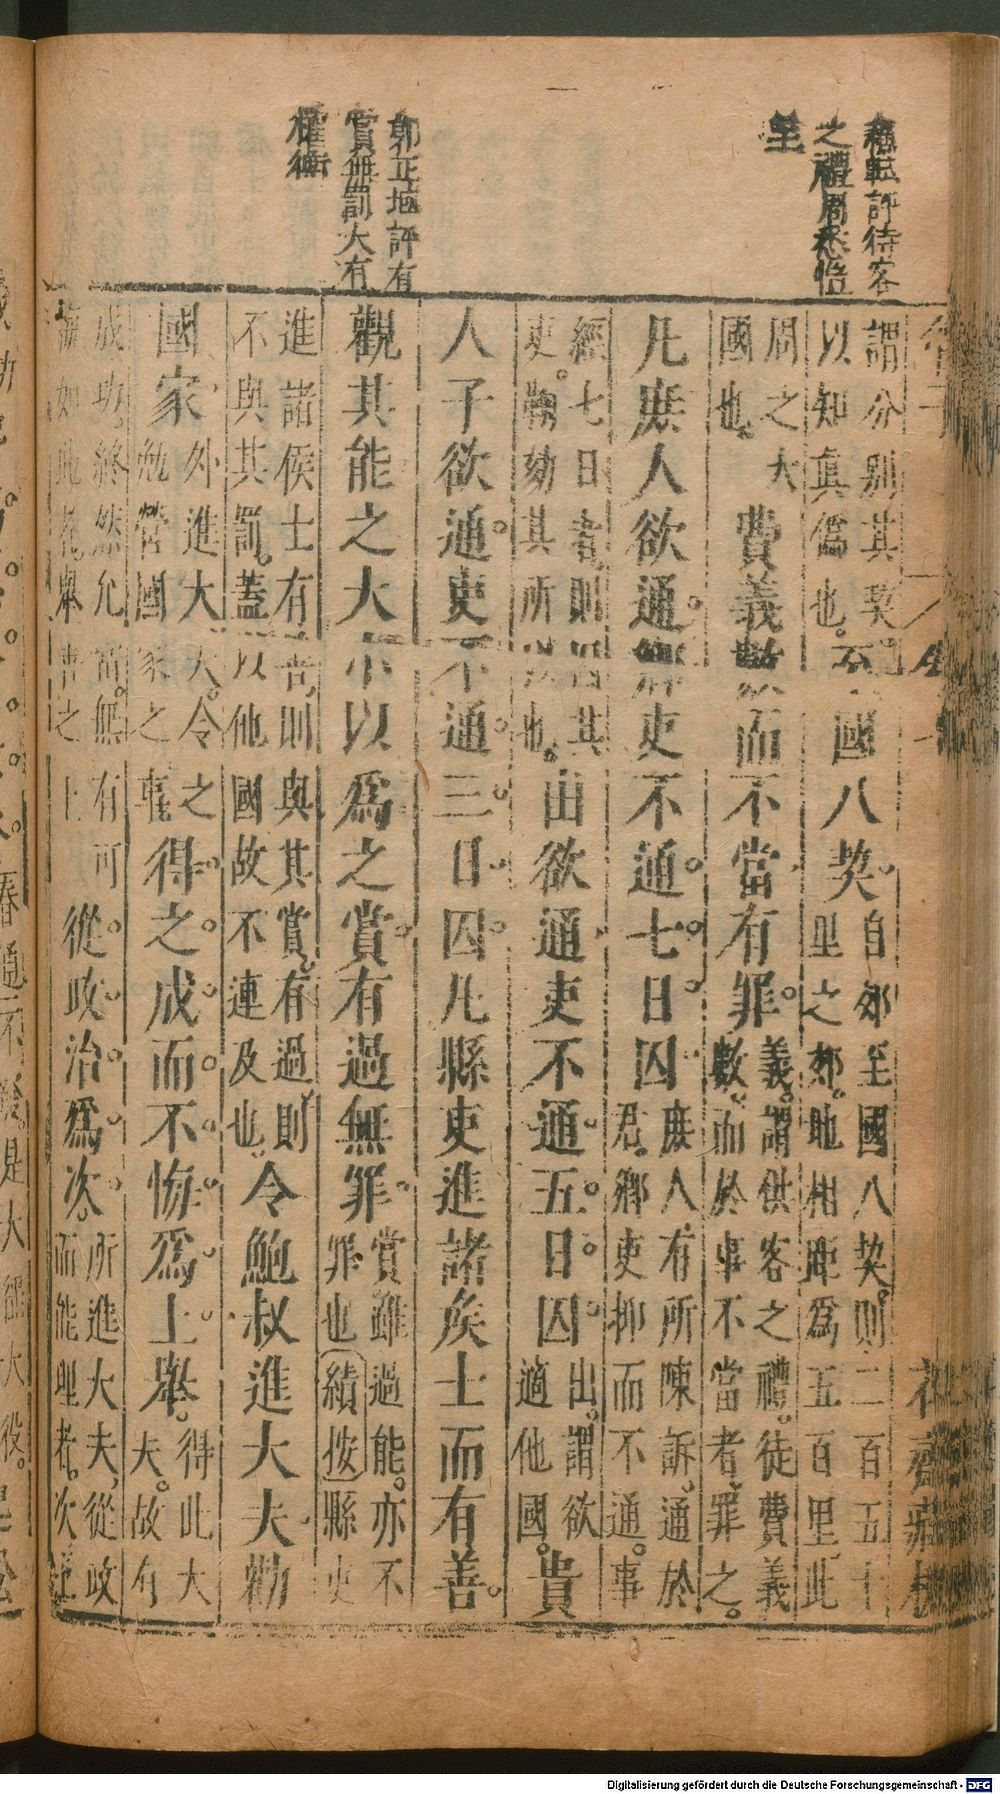 蘇軾評待客
之禮周悉恰
至
郭正域評有
賞無罰大有
權衡
謂分别其契
以知真僞也
至國八契
自郊至國八契則二百五十
里之郊地相距爲五百里此
周之大
國也
費義數而不當有罪
義謂供客之禮徒費義
數而於事不當者罪之
凡庶人欲通鄉吏不通七日囚
庶人有所陳訴通於
君鄉吏抑而不通事
經七日者則囚其
吏鞫劾其所以也
出欲通吏不通五日囚
出謂欲
適他國
貴
人子欲通吏不通三日囚凡縣吏進諸矦士而有善
觀其能之大小以爲之賞有過無罪
賞雖過能亦不
罪也績按縣吏
進諸侯士有善則與其賞有過則
不與其罰蓋以他國故不連及也
令鮑叔進大夫勸
國家
外進大夫令之
勉營國家之事
得之成而不悔爲上舉
得此大
夫故有
成功終然允當無有可
如此者舉事之上
從政治爲次
所進大夫從政
而能理者次
Digitalisierung gefördert durch die Deutsche Forschungsgemeinschaft - DFG